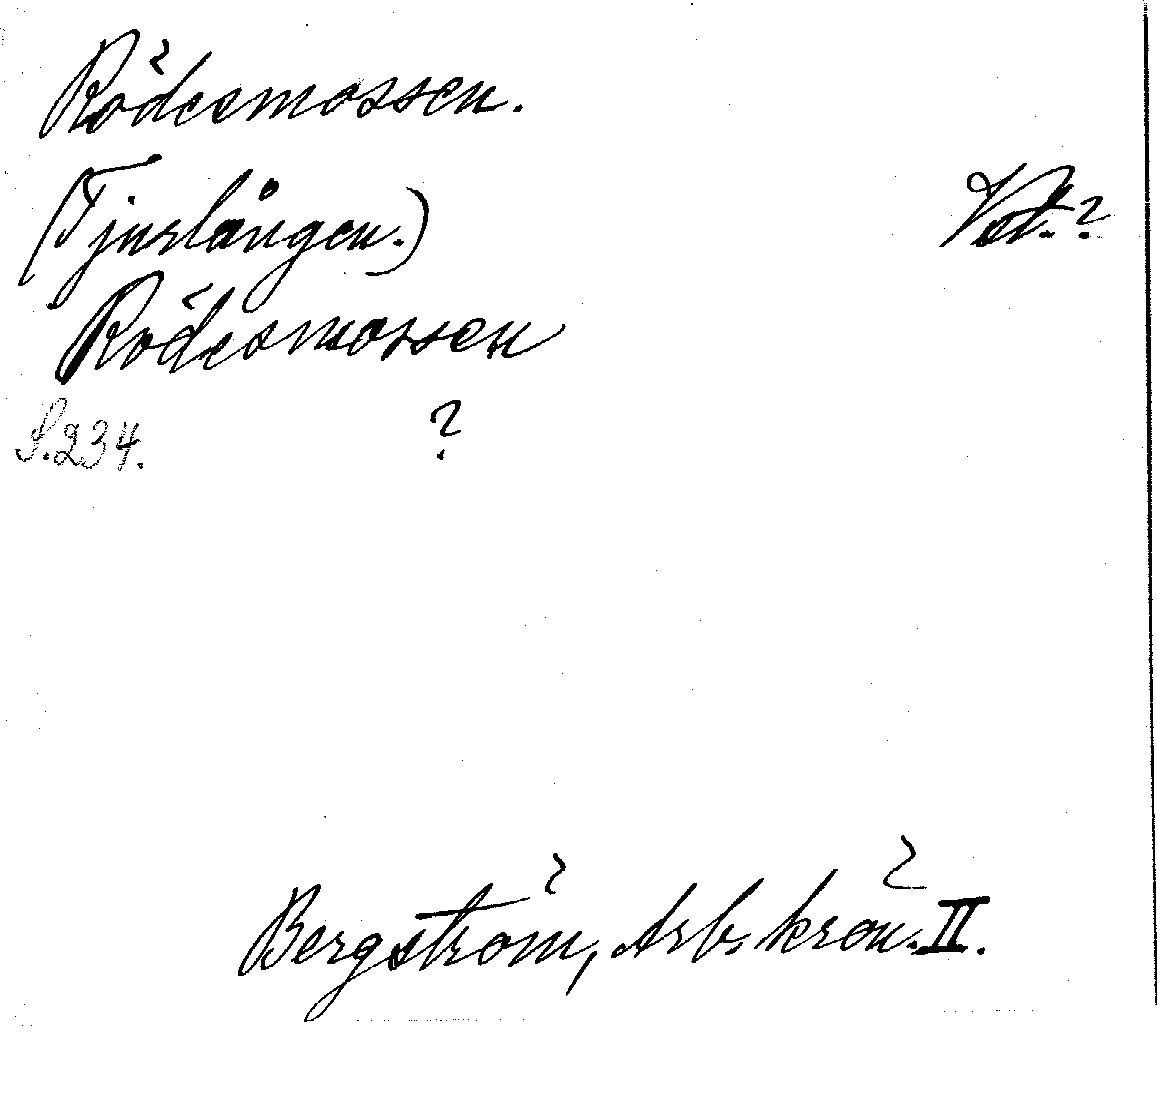 Rödesmossen.
(Tjurlången.)
Vstm.?
Rödesmossen
S.234.
?
Bergström, Arb. krön. II.